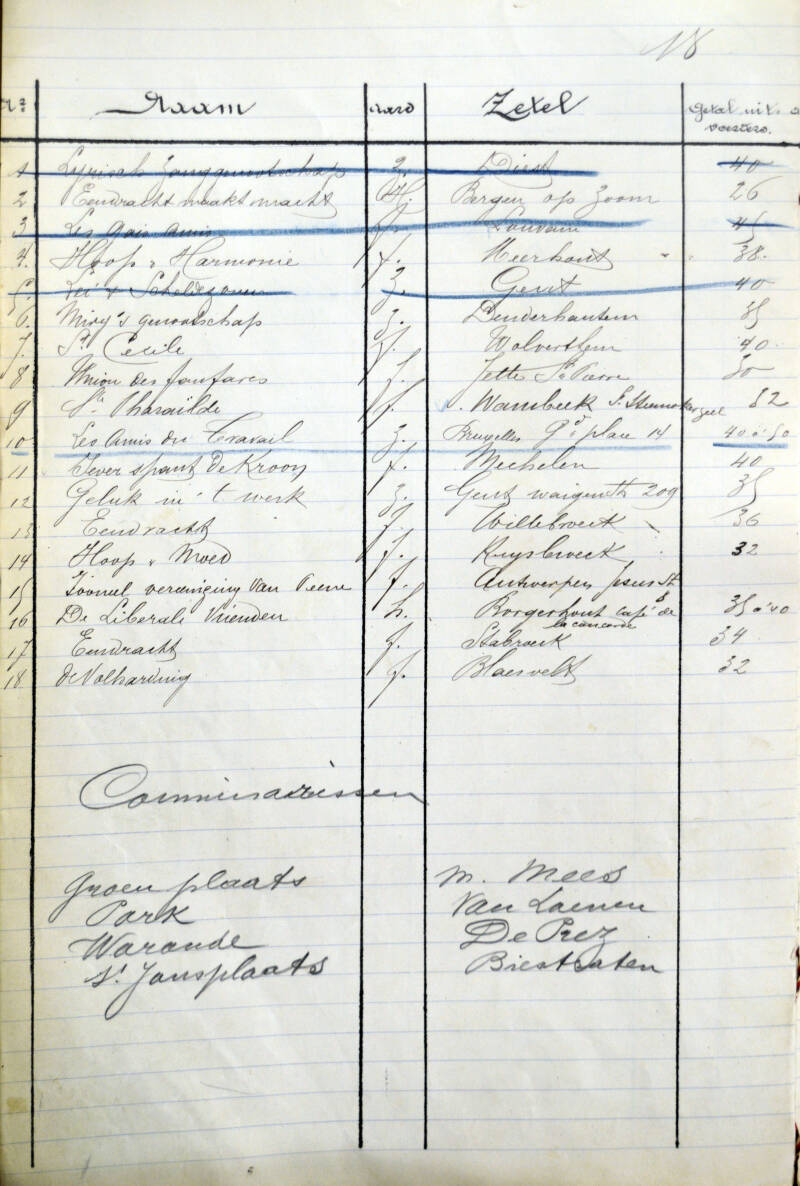 18
Nr Naam aard Zetel Getal uitvoerders.
1 Lyrisch Zanggenootschap Z. Diest 40
2 Eendracht maakt macht H. Bergen op Zoom 26
3 Les Gais Amis f. Louvain 45
4. Hoop & Harmonie f. Meerhout " " 38.
5. Lei & Scheldezonen Z. Gent 40
6. Miry's genootschap Z. Denderhautem 35
7. St Cecile f. Wolverthem 40.
8 Union des fanfares f. Jette St Pierre 30
9 Ste Pharaïlde f. Wambeek St. Steenockerzeel 52
10 Les Amis du Travail Z. Bruxelles Gde place 14 40 à 50
11 Iever spant De Kroon f. Mechelen 40
12 Geluk in 't werk Z. Gent 209 35
13 Eendracht f. Willebroeck 36
14 Hoop & Moed f. Ruysbroeck 32
15 Tooneel vereeniging Van Peene f. Antwerpen Jesus St 8
16 De Liberale Vrienden h. Borgerhout café de la concorde 35 à 40
17 Eendracht f. Stabroeck 34
18 de Volharding f. Blaesvelt 32
Commissarissen
Groen plaats M. Mees
Park Van Laenen
Warande De Prez
St Jansplaats Biestraten